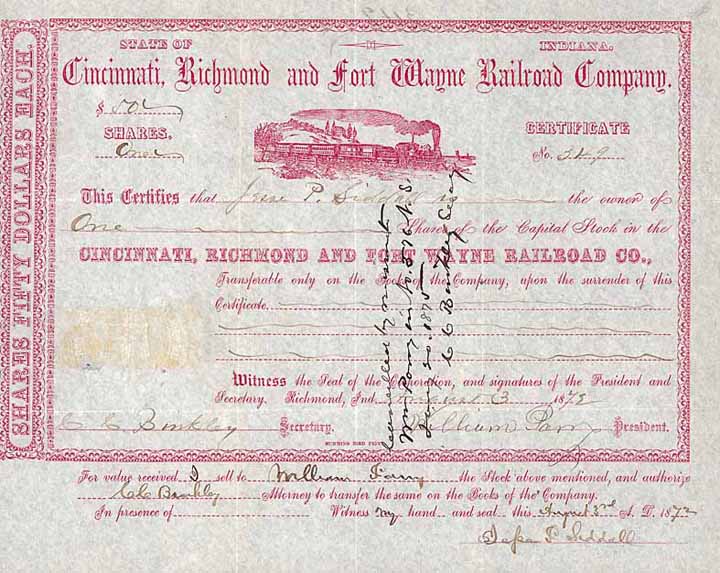 SHARES FIFTY DOLLARS EACH.
STATE OF INDIANA.
Cincinnati, Richmond and Fort Wayne Railroad Company.
$ 50
SHARES, CERTIFICATE
One No.
This Certifies that Jesse P. Siddall is the owner of
One Shares of the Capital Stock in the
CINCINNATI, RICHMOND AND FORT WAYNE RAILROAD CO.,
Transferable only on the Books of the Company, upon the surrender of this
Certificate
Witness the Seal of the Corporation, and signatures of the President and
Secretary. Richmond, Ind. August 3 1872
C C Binkley Secretary. William Parry President.
Cancelled by
Wm Parry in No. 576 N. S.
1875
C C Binkley Secy
For value received I sell to William Parry the Stock above mentioned, and authorize
C C Binkley Attorney to transfer the same on the Books of the Company.
In presence of Witness my hand and seal this August 3rd A. D. 1872
Jesse P. Siddall